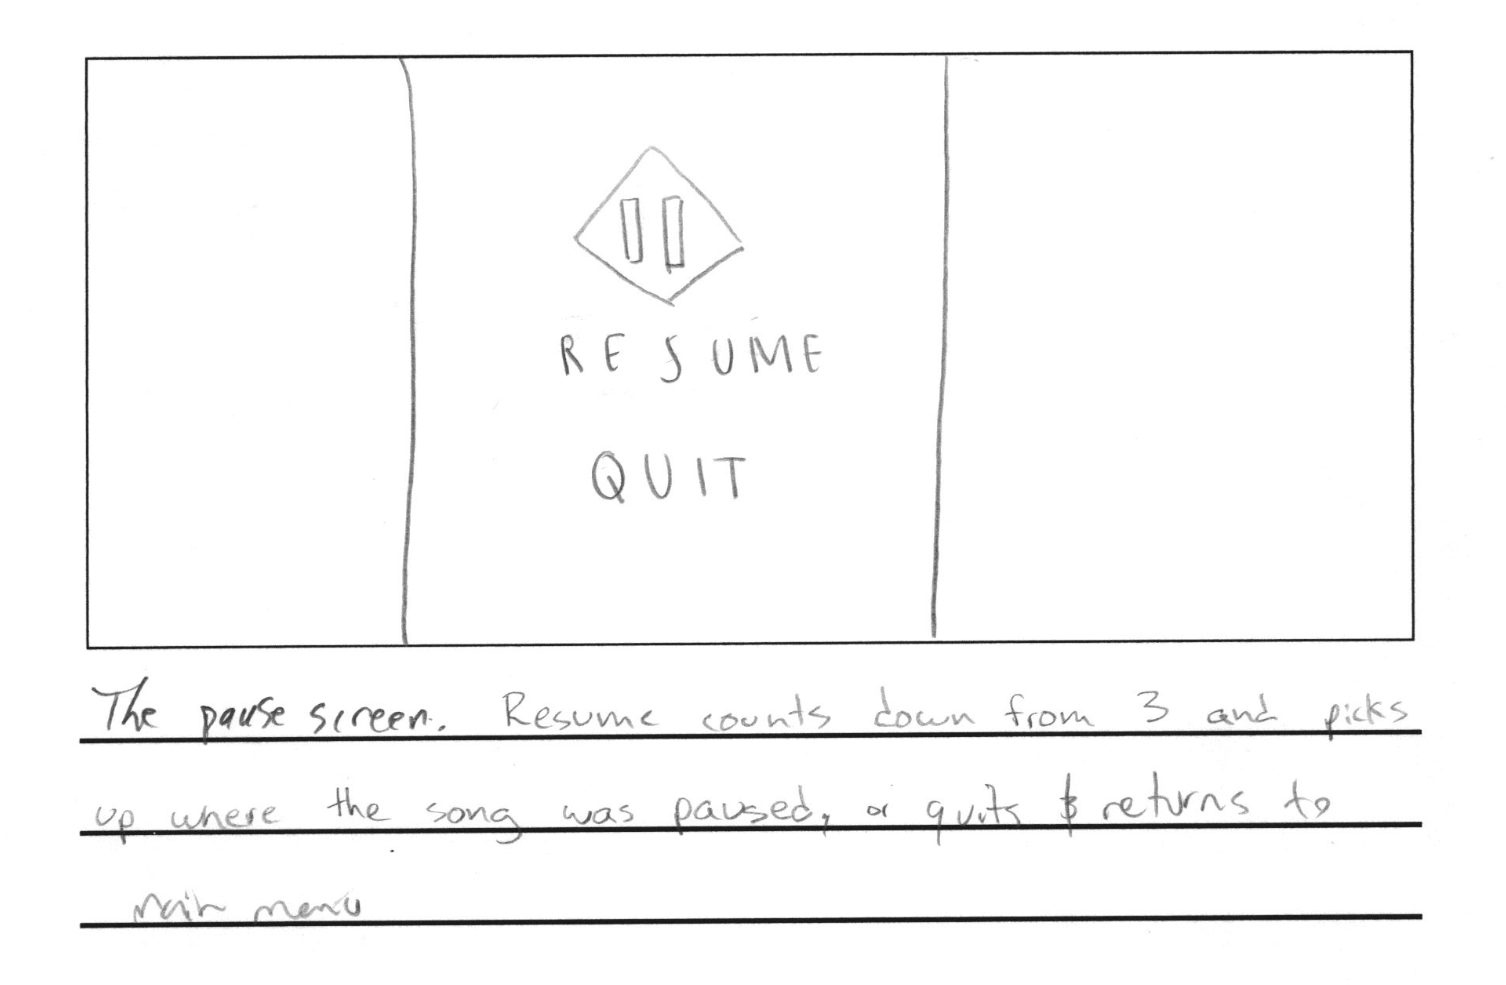 RESUME
QUIT
The pause screen. Resume counts down from 3 and picks
up where the song was paused, or quits & returns to
main menu